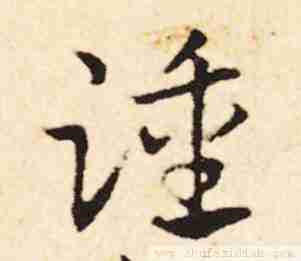 諈
www.shufazidian.com